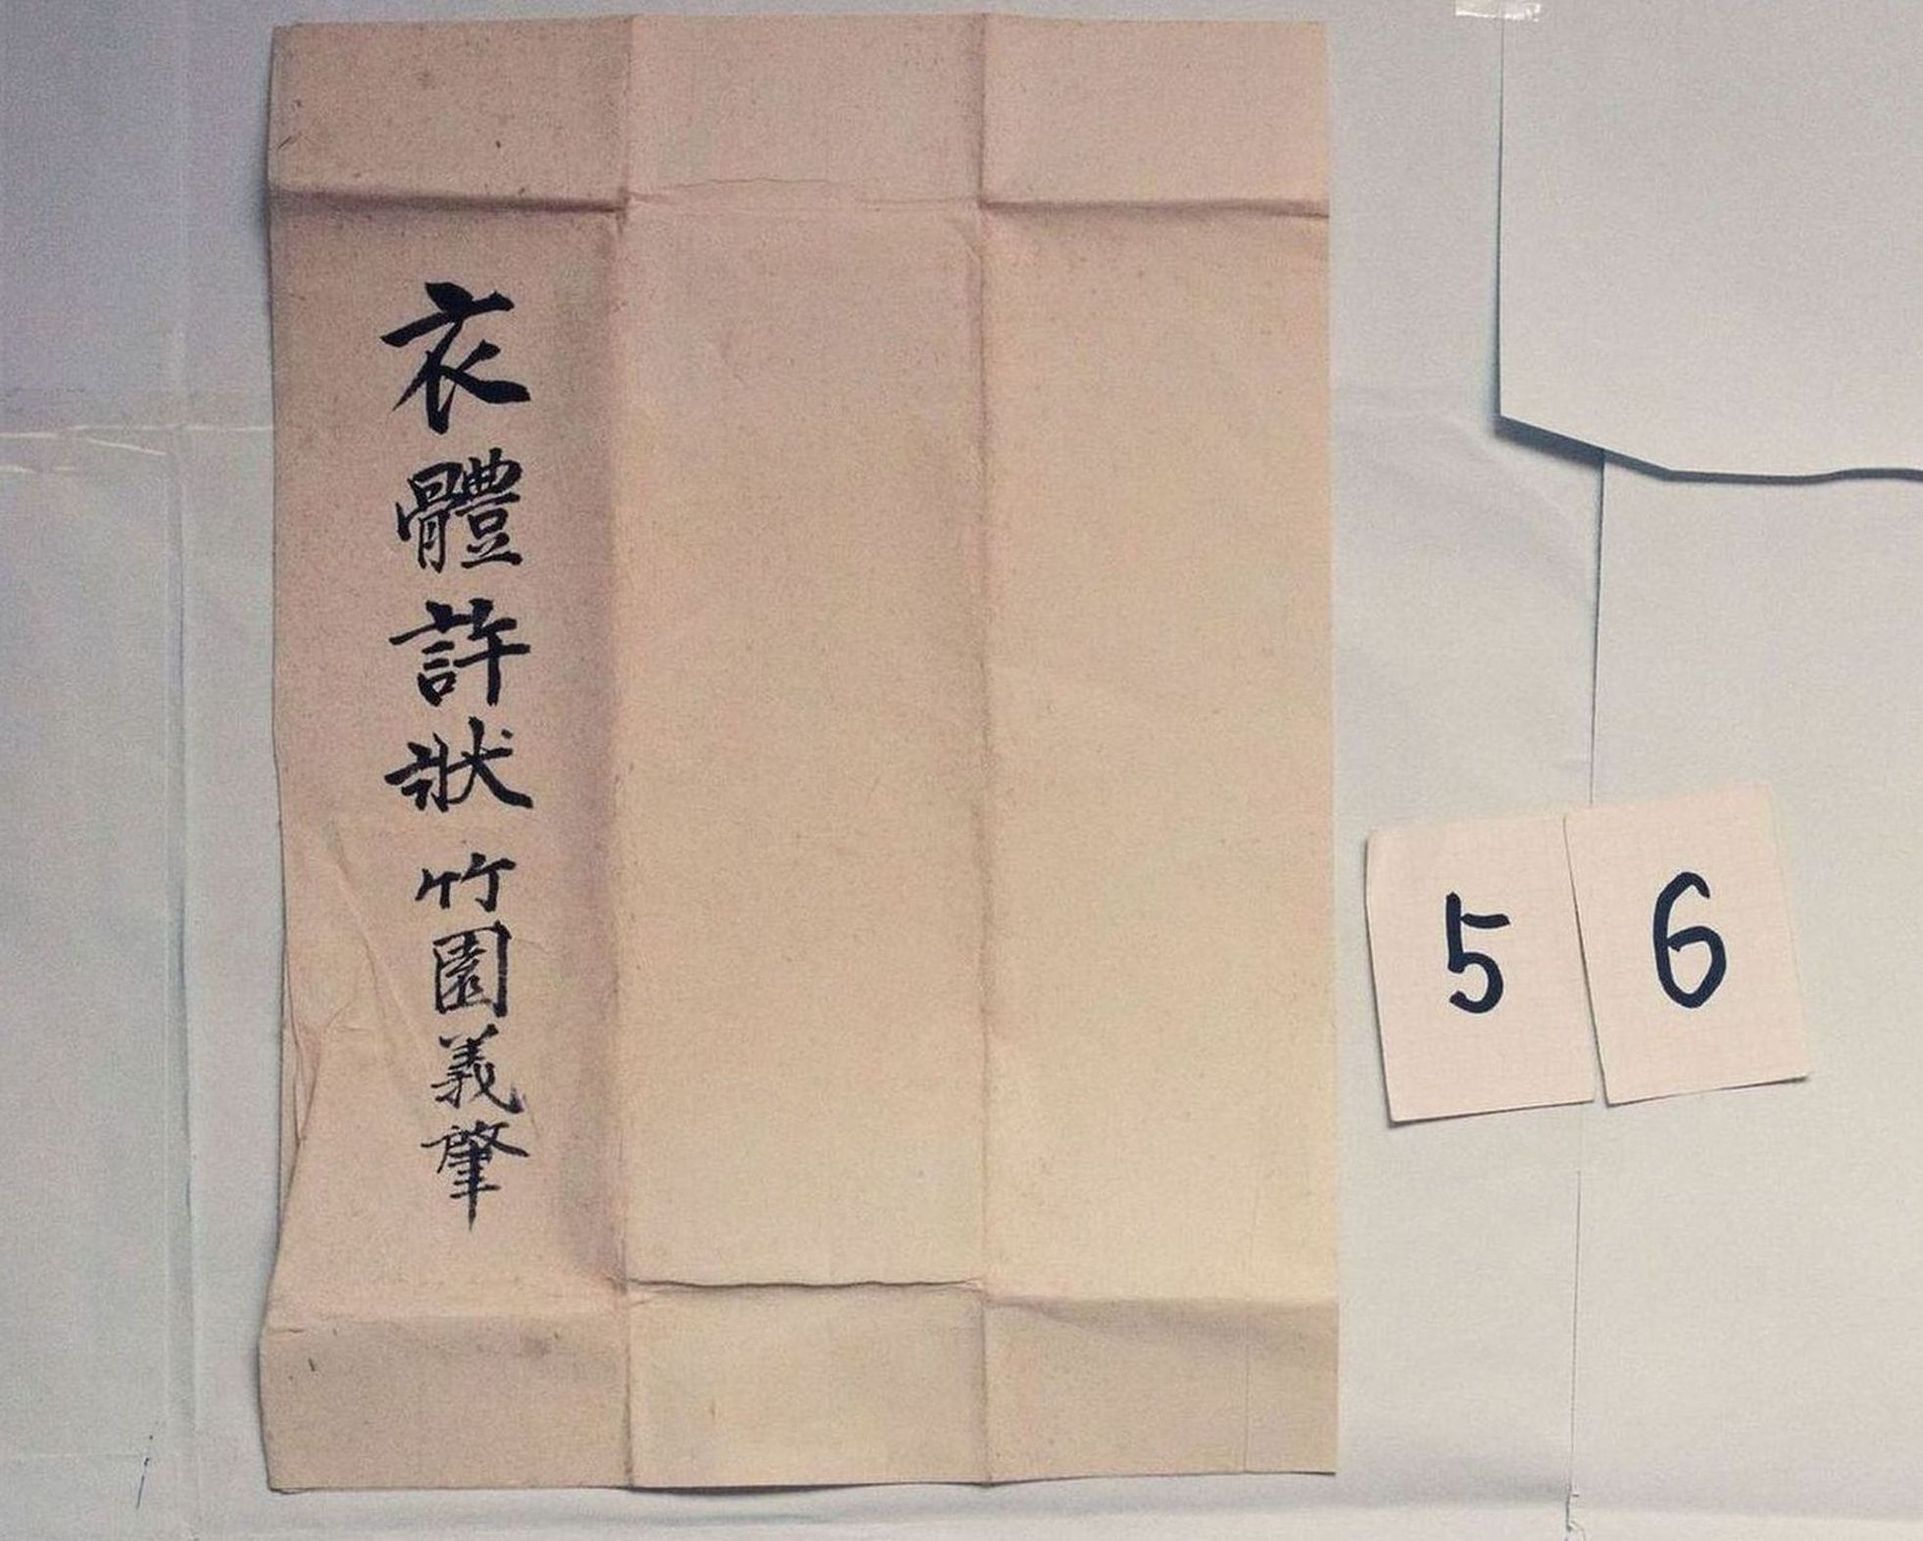 衣體許狀 竹園義肇
5 6